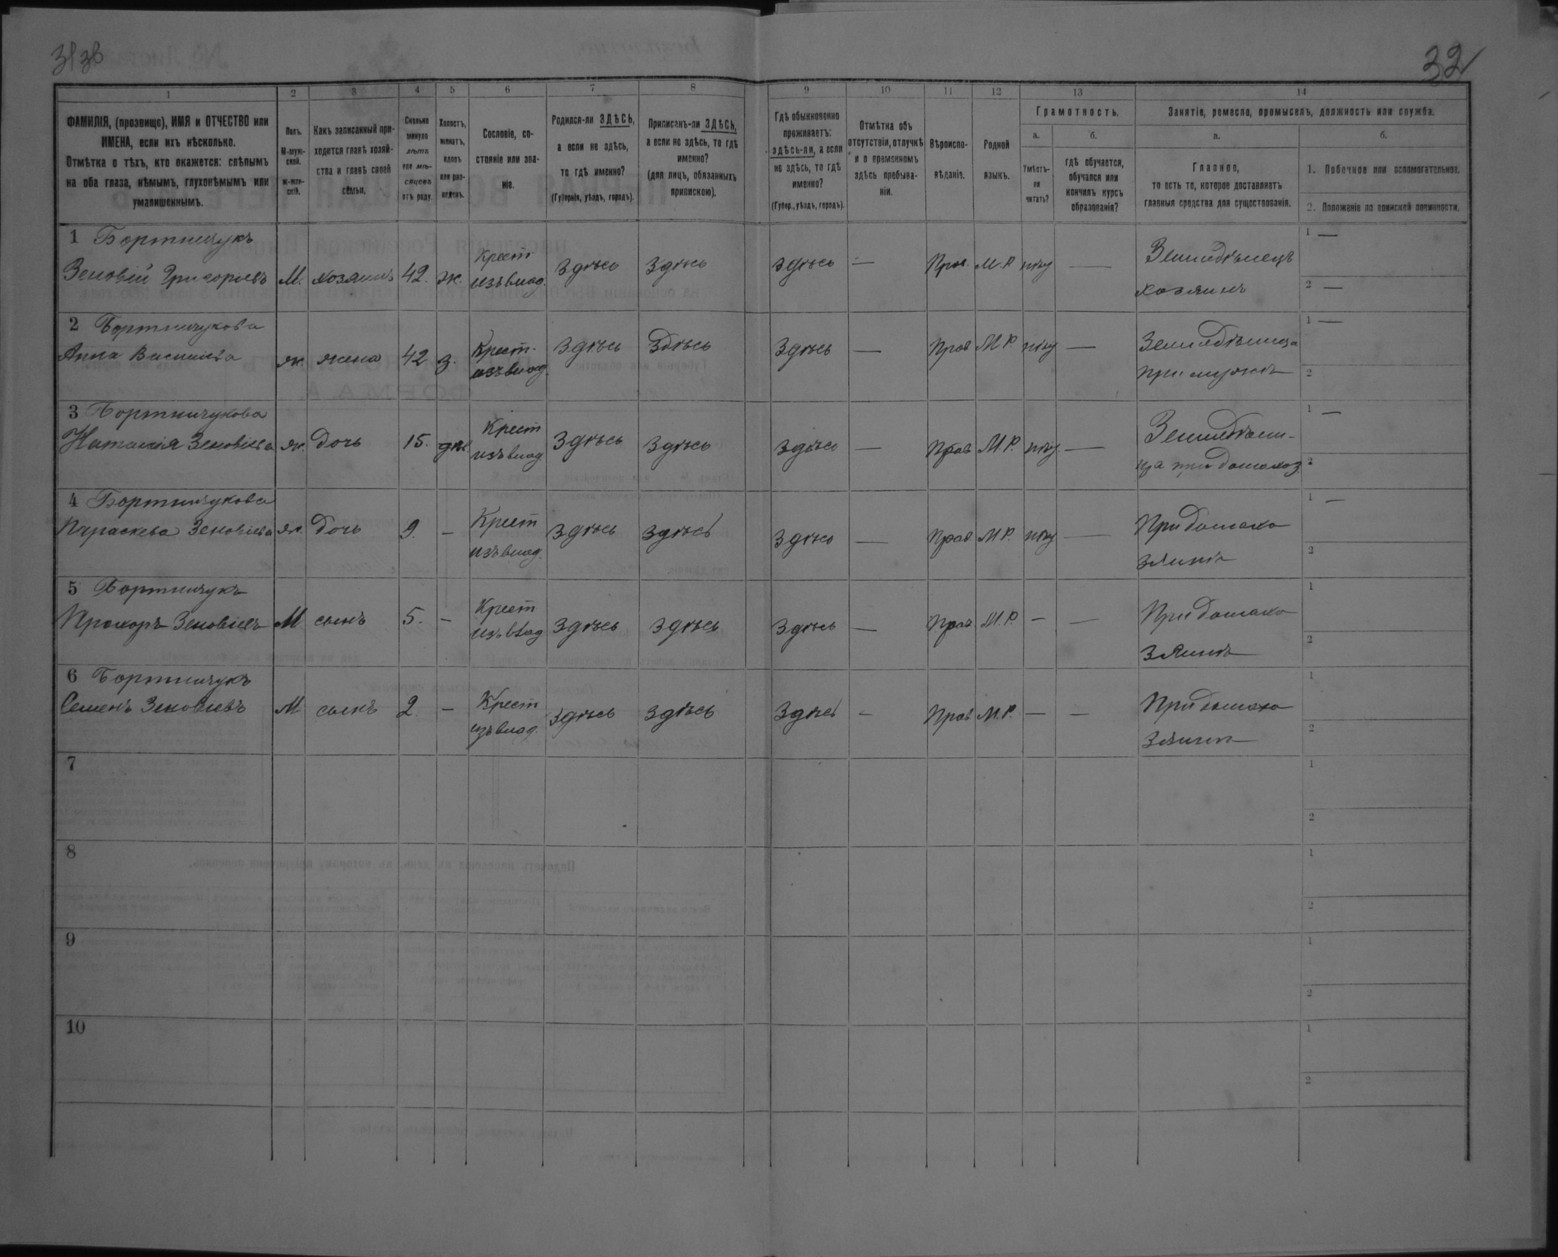 32
1 2 3 4 5 6 7 8 9 10 11 12 13 14
ФАМИЛІЯ, (прозвище), ИМЯ и ОТЧЕСТВО или
ИМЕНА, если ихъ нѣсколько.
Отмѣтка о тѣхъ, кто окажется: слѣпымъ
на оба глаза, нѣмымъ, глухонѣмымъ или
умалишеннымъ.
Полъ.
М-муж-
ской.
ж-жен-
скій.
Какъ записанный при-
ходится главѣ хозяй-
ства и главѣ своей
семьи.
Сколько
минуло
лѣтъ
или мѣ-
сяцевъ
отъ роду.
Холостъ,
женатъ,
вдовъ
или раз-
веденъ.
Сословіе, со-
стояніе или зва-
ніе.
Родился-ли ЗДѢСЬ,
а если не здѣсь,
то гдѣ именно?
(Губернія, уѣздъ, городъ).
Приписанъ-ли ЗДѢСЬ,
а если не здѣсь, то гдѣ
именно?
(для лицъ, обязанныхъ
припискою).
Гдѣ обыкновенно
проживаетъ:
здѣсь-ли, а если
не здѣсь, то гдѣ
именно?
(Губер., уѣздъ, городъ).
Отмѣтка объ
отсутствіи, отлучкѣ
и о временномъ
здѣсь пребыва-
ніи.
Вѣроиспо-
вѣданіе.
Родной
языкъ.
Грамотность.
а.
Умѣетъ-
ли
читать?
б.
гдѣ обучается,
обучался или
кончилъ курсъ
образованія?
Занятіе, ремесло, промыселъ, должность или служба.
а.
Главное,
то есть то, которое доставляетъ
главныя средства для существованія.
б.
1. Побочное или вспомогательное.
2. Положеніе по воинской повинности.
1 Бортничукъ
Зеновій Григорьевъ М. хозяинъ 42. ж. Крест изъ влад. Здѣсь Здѣсь Здѣсь — Прав. М.Р. нѣту — Земледѣлецъ хозяинъ 1 — 2 —
2 Бортничукова
Анна Васильева ж. жена 42 з. Крест. изъ влад. Здѣсь Здѣсь Здѣсь — Прав М.Р. нѣту — Земледѣлица при мужѣ 1 — 2
3 Бортничукова
Наталія Зеновіева ж. дочь 15. дѣв Крест изъ влад Здѣсь Здѣсь Здѣсь — Прав М.Р. нѣту — Земледѣли-ца при домохоз 1 — 2
4 Бортничукова
Параскева Зеновіева ж. дочь 9. — Крест изъ влад. Здѣсь Здѣсь Здѣсь — Прав М.Р. нѣту — При домохо зяинѣ 1 — 2
5 Бортничукъ
Прохоръ Зеновіевъ М сынъ 5. — Крест изъ влад Здѣсь Здѣсь Здѣсь — Прав М.Р. — — При домохо зяинѣ 1 2
6 Бортничукъ
Семенъ Зеновіевъ М сынъ 2 — Крест изъ влад. Здѣсь Здѣсь Здѣсь — Прав М.Р. — — При домохо зяинѣ 1 2
7 1 2
8 1 2
9 1 2
10 1 2